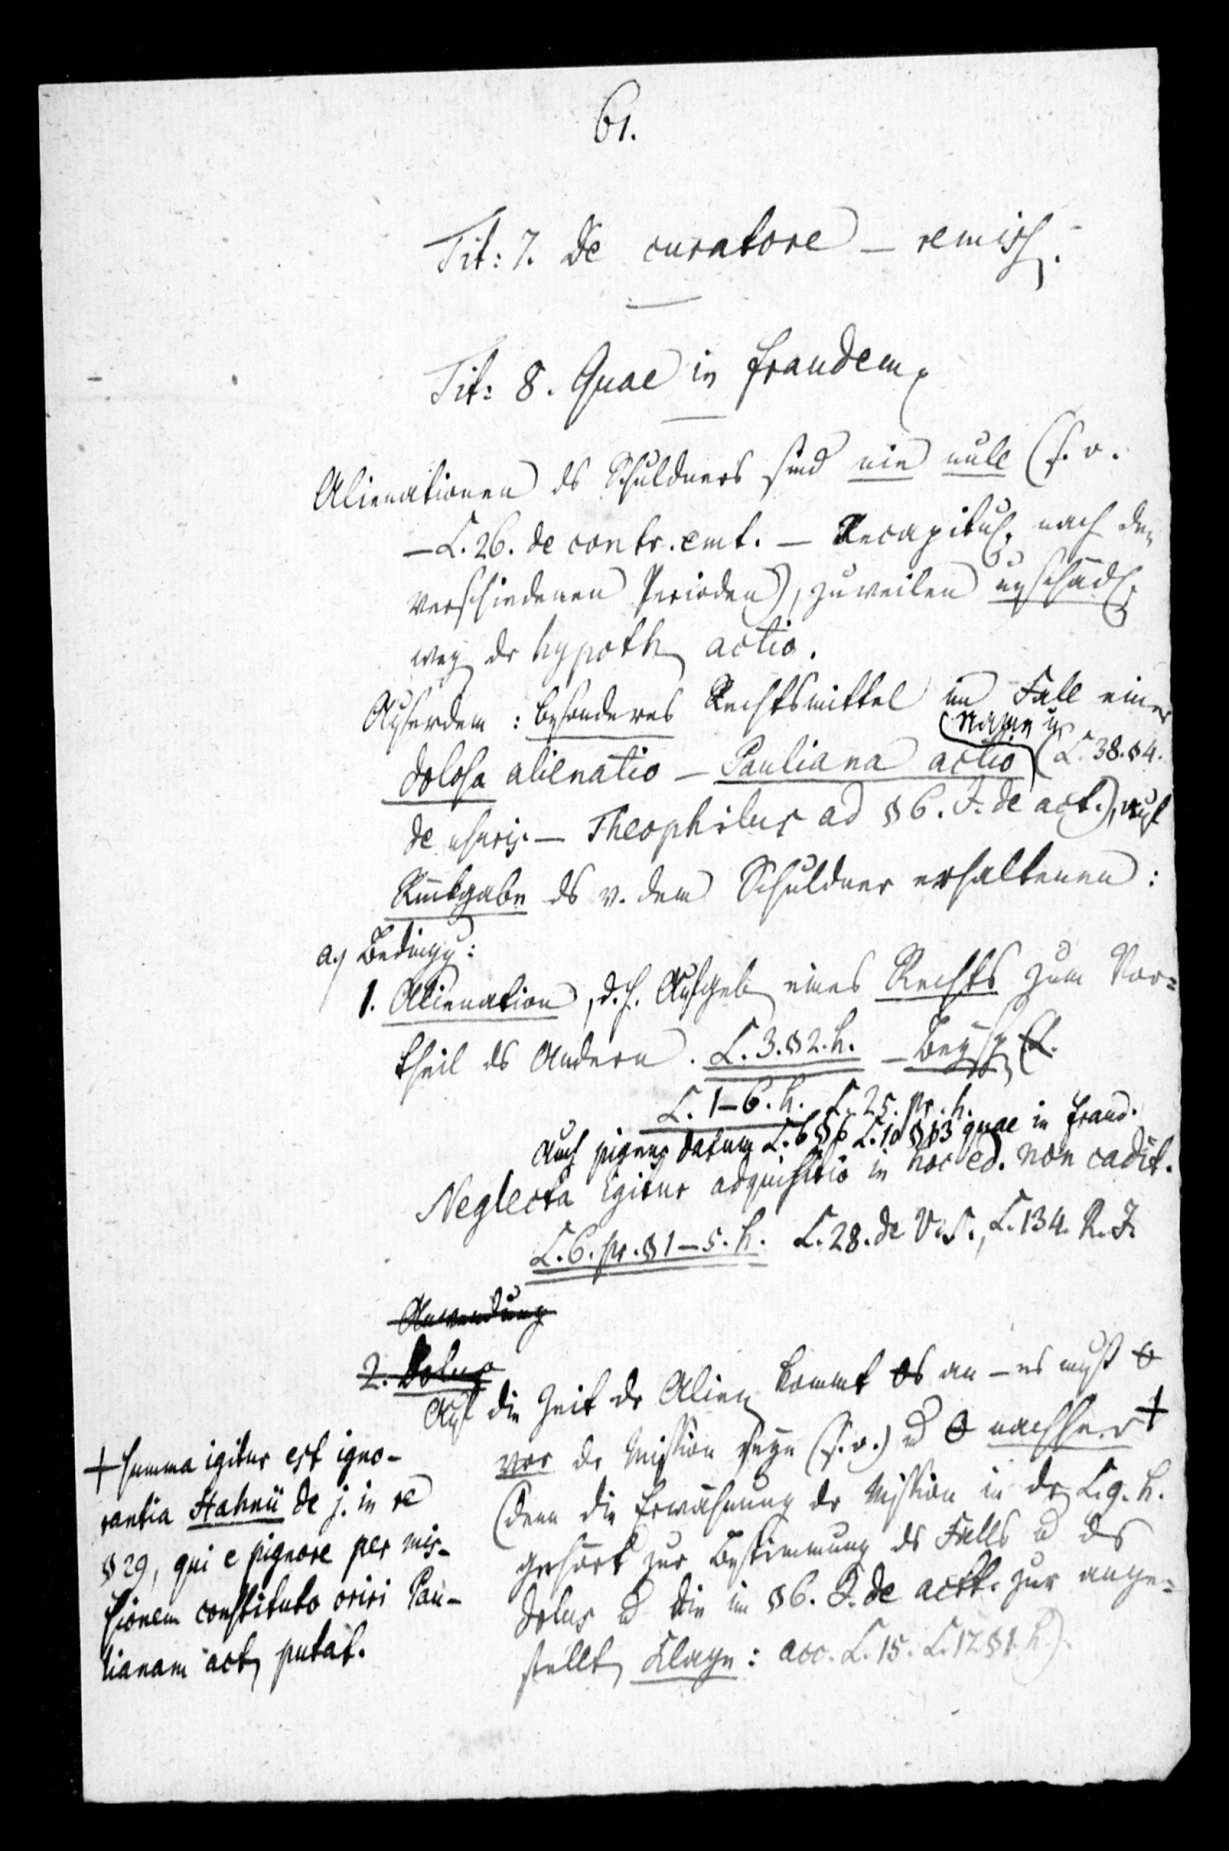 61.
Tit: 7. De curatore – remiss.
Tit: 8. Quae in fraudem
Alienationen ds Schuldners sind nie null (s. o.
– L. 26. de contr. emt. – Recapitul. nach den
verschiedenen Perioden), zuweilen unschädl.
weg. dr hypoth. actio.
Außerdem: besonderes Rechtsmittel im Fall einer
Name u.
dolosa alienatio – Pauliana actio (L. 38. §4.
de usuris. – Theophilus ad §6. J. de act.), auf
Rückgabe ds v. dem Schuldner erhaltenen:
a) Bedingg:
1. Alienation, d. h. Aufgeb. eines Rechts zum Vor=
theil ds Andern. L. 3. §2. h. – Beysp.
L. 1–6. h. L. 25. pr. h.
Auch pignus datum L. 6 §6 L. 10 §13 quae in fraud.
Neglecta igitur adquisitio in hoc ed. non cadit.
L. 6. pr. §1–5. h. L. 28. de V. S., L. 134. R. J.
Anwendung
2. Dolus
Auf die Zeit dr Alien. kommt es an – es muß
vor dr Mission seyn (s. o.) u nachher +
(denn die Erwähnung dr Mission in dr L. 9. h.
gehört zur Bestimmung ds Falls u ds
dolus u die im §6. J. de act. zur ange=
stellt. Klage: acc. L. 15. L. 17 §1. h.).
+ summa igitur est igno–
rantia Hahnii de j. in re
§29, qui e pignore per mis–
sionem constituto oriri Pau–
lianam act. putat.